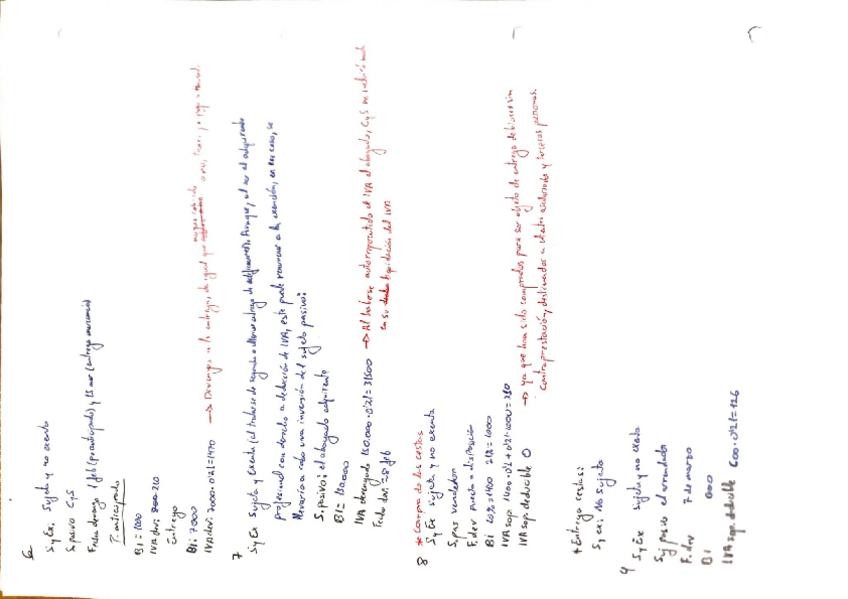 6
S y Ex. Sujeta y no exenta
S. pasivo CyS
Fecha devengo 1 feb (pago anticipado) y 15 mar (entrega mercancía)
P. anticipado
BI = 1000
IVA dev: 210
Entrega
BI: 7000
IVA dev: 7000 · 0'21 = 1470 → Devengo a la entrega, da igual que
7
S y Ex Sujeta y Exenta (al tratarse de segunda o ulterior entrega de edificaciones). Aunque, al ser el adquirente
profesional con derecho a deducción de IVA, este puede renunciar a la exención, en ese caso, se
llevaría a cabo una inversión del sujeto pasivo:
S. pasivo: el abogado adquirente
BI = 150.000
IVA devengado 150.000 · 0'21 = 31500 → Al haberse autorepercutido el IVA el abogado, CyS no
en su liquidación del IVA
Fecha dev: = 8 feb
8 * Compra de las cestas
S y Ex sujeta y no exenta
S. pas vendedor
F. dev puesta a disposición
BI 10% = 1400 21% = 1000
IVA sop 1400 · 0'1 + 0'21 · 1000 = 350
IVA sop. deducible 0 → ya que han sido comprados para ser objeto de entrega de bienes sin
contraprestación, destinados a asalariados y terceras personas.
* Entrega cestas:
S y ex: No sujeta
9 S y Ex Sujeta y no exenta
S. pasivo el vendedor
F. dev 7 de marzo
BI 600
IVA sop. deducible 600 · 0'21 = 126